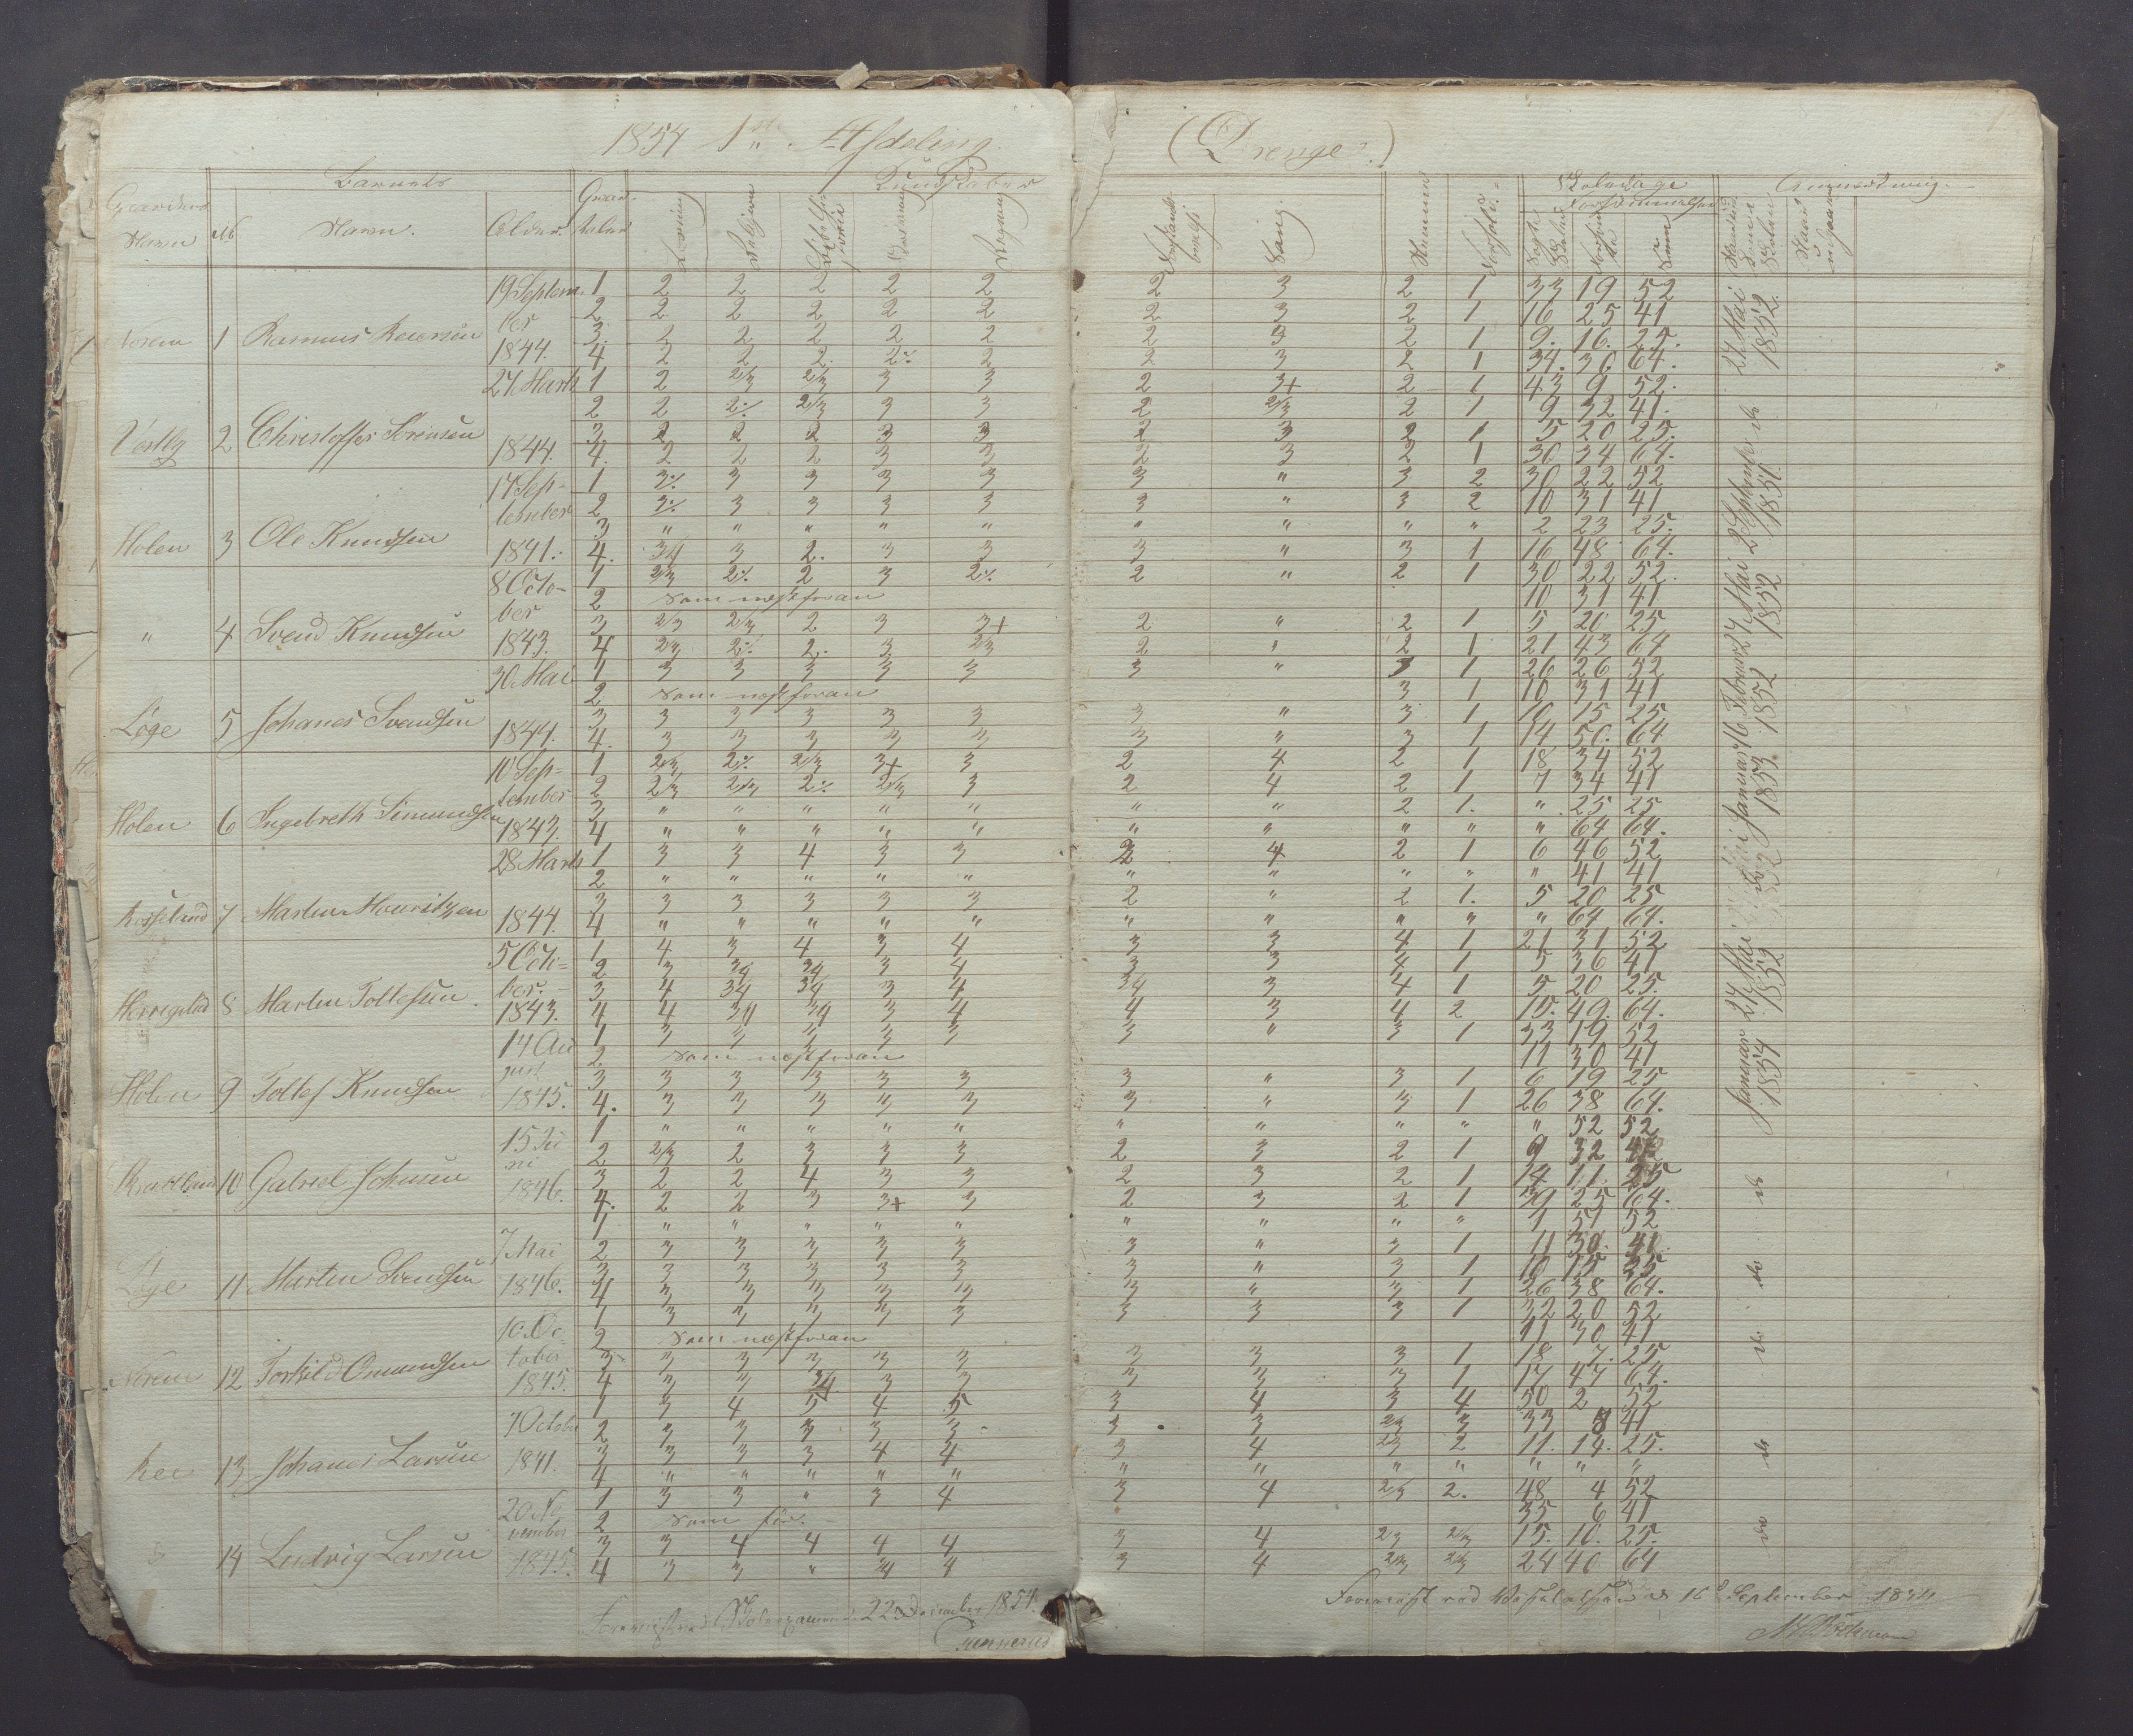 1854 1ste Afdeling (Drenge.)
Barnets Kundskaber Skoledage Anmærkning
Gaardens Navn № Navn. Alder Qvartaler Læsning Religion Bibelhistorie Skrivning Regning Sang. Forhold Forsømmelser Sum
19 Septem- 1 2 2 2 2 2 2 3 2 1 33 19 52
ber 2 2 2 2 2 2 2 3 2 1 16 25 41
Norem 1 Rasmus Reiersen 3. 2 2 2 2 2 2 3 2 1 9. 16. 25.
1844. 4. 2 2 2. 2./. 2 2 3 2 1 34. 30. 64.
27. Marts 1 2 2/3 2/3 3 3 2 3+ 2 1 43 9 52.
2 2 2./. 2/3 3 3 2 2/3 2 1 9 32 41.
Vestly 2 Christoffer Sørensen 3 2 2 2 3 3 2 3 2 1 5 20 25.
1844 4. 2 2 2 3 3 2 3 2 1 30 34 64.
17 Sep- 1 3./. 3 3 3 3 3 " 3 2 30 22 52
tember 2 3./. 3 3 3 3 3 " 3 2 10 31 41
Holen 3 Ole Knudsen 3 " " " " " " " " " 2 23 25.
1841. 4. 3/4 3 2. 3 3 3 " 3 1 16 48 64.
8 Octo- 1 2/3 2./. 2 3 2./. 2 " 2 1 30 22 52.
ber 2 Som næstforan 10 31 41
" 4 Svend Knudsen 3 2/3 2/3 2 3 3+ 2 " 2 1 5 20 25
1843. 4 2/3 2./. 2. 3 2/3 2 " 2 1 21 43 64
30. Mai 1 3 3 3 3 3 3 " 3 1 26 26 52
2 Som næstforan 3 1 10 31 41
Løge 5 Johanes Svendsen 3 3 3 3 3 3 3 " 3 1 10 15 25
1844. 4. 3 3 3 3 3 3 " 3 1 14 50. 64
10 Sep- 1 2/3 2./. 2/3 3+ 3 2 4 2 1 18 34 52
tember 2 2/3 2/3 2./. 2/3 3 2 4 2 1 7 34 41
Holen 6 Ingebreth Simundsen 3 " " " " " " " 2 1. " 25 25
1843. 4 " " " " " " " " " " 64 64.
28 Marts 1 3 3 4 3 3 2 4 2 1 6 46 52
2 " " " " " " " " " " 41 41
Rosseland 7 Martin Mauritzen 3 3 3 3 3 3 2 " 2 1. 5 20 25
1844. 4 " " " " " " " " " " 64 64.
5 Octo- 1 4 3 4 3 4 3 3 4 1 21 31 52
ber. 2 3 3/4 3/4 3 4 3 3 4 1 5 36 41
Herregstad 8 Martin Tollefsen. 3 4 3/4 3/4 3 4 3/4 3 4 1 5 20 25.
1843. 4 4 3/4 3/4 3 4 4 3 4 2 15. 49. 64.
14 Au 1 3 3 3 3 3 3 " 3 1 33 19 52
gust 2 Som næstforan 11 30 41
Holen 9 Tollef Knudsen 3 3 3 3 3 3 3 " 3 1 6 19 25
1845. 4. 3 3 3 3 3 3 " 3 1 26 38 64.
1 " " " " " " " " " " 52 52
15 Ju 2 2/3 2 3 3 3 2 3 2 1 9 32 41
ni 10 Gabriel Johnsen 3 2 2 4 3 3 2 3 2 1 14 11. 25
1846. 4. 2 2 3 3+ 3 2 3 2 1 39 25 64.
1 " " " " " " " " " 1 51 52
7 Mai 2 3 3 3 3 3 3 " 3 1 11 30. 41.
Løge 11 Martin Svendsen 3 3 3 3 3 3 3 " 3 1 10 15 25
1846. 4 3 3 3 3 3 3 " 3 1 26 38 64.
1 3 3 3 3 3 3 3 3 1 32 20 52
10. Oc- 2 Som næstforan 11 30 41
Norem 12 Torkild Omundsen tober 3 3 3 3 3 3 3 3 3 1 18 7. 25
1845. 4 3 3 3/4 3 3 3 3 3 1 17 47 64.
1 3 4 5 4 5 3 4 3 4 50 2 52
7 October 2 3 3 3 3 3 3 3 2/3 3 33 8 41
Ree 13 Johanes Larsen 3 3 3 3 4 4 3 4 2/3 2 11. 14. 25.
1841. 4 " " " " " " " " " " " "
20 No 1 3 3 " 3 4 3 4 2/3 2. 48 4 52
vember 2 Som før. 35 6 41
14 Ludvig Larsen 3 3 4 4 4 4 3 4 2/3 2/3 15. 10. 25.
1845. 4 3 3 " 3/4 4 3 4 2/3 2/3 24 40 64
27 Mai 1852.
do
2 September 1851.
27 Mai 1852
16 Februar 1852
Januar 1853.
27 Mai 1852
Januar 1854
do
do
do
do
do
Foreviist ved Skoleexamen 22 December 1854.
Gunnerus
Foreviist ved d 16de September 1854